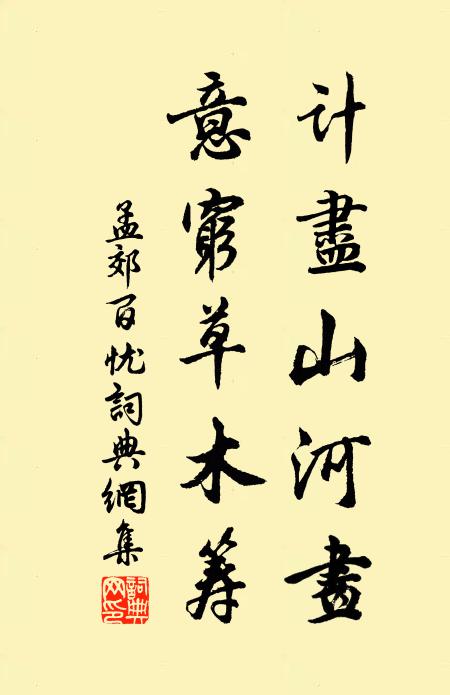 計盡山河畫
意窮草木筹
孟郊百忧詞典網集
詞典
网印